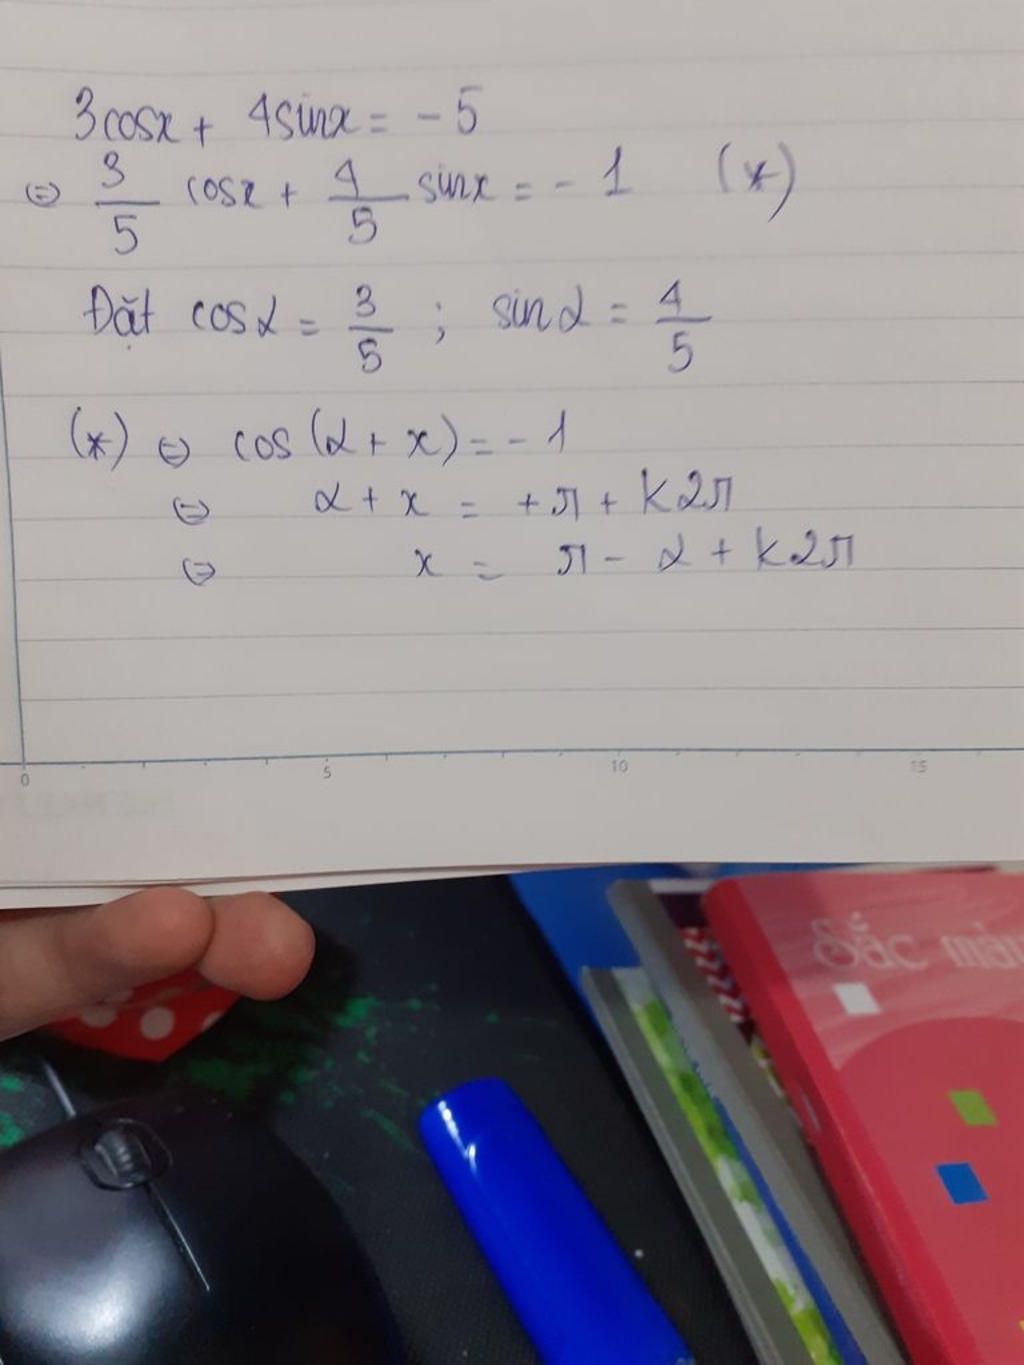 3cosx + 4sinx = -5
⇔ 3/5 cosx + 4/5 sinx = -1 (*)
Đặt cosα = 3/5 ; sinα = 4/5
(*) ⇔ cos(α + x) = -1
⇔ α + x = +π + k2π
⇔ x = π - α + k2π
0 5 10 15
Sắc màu